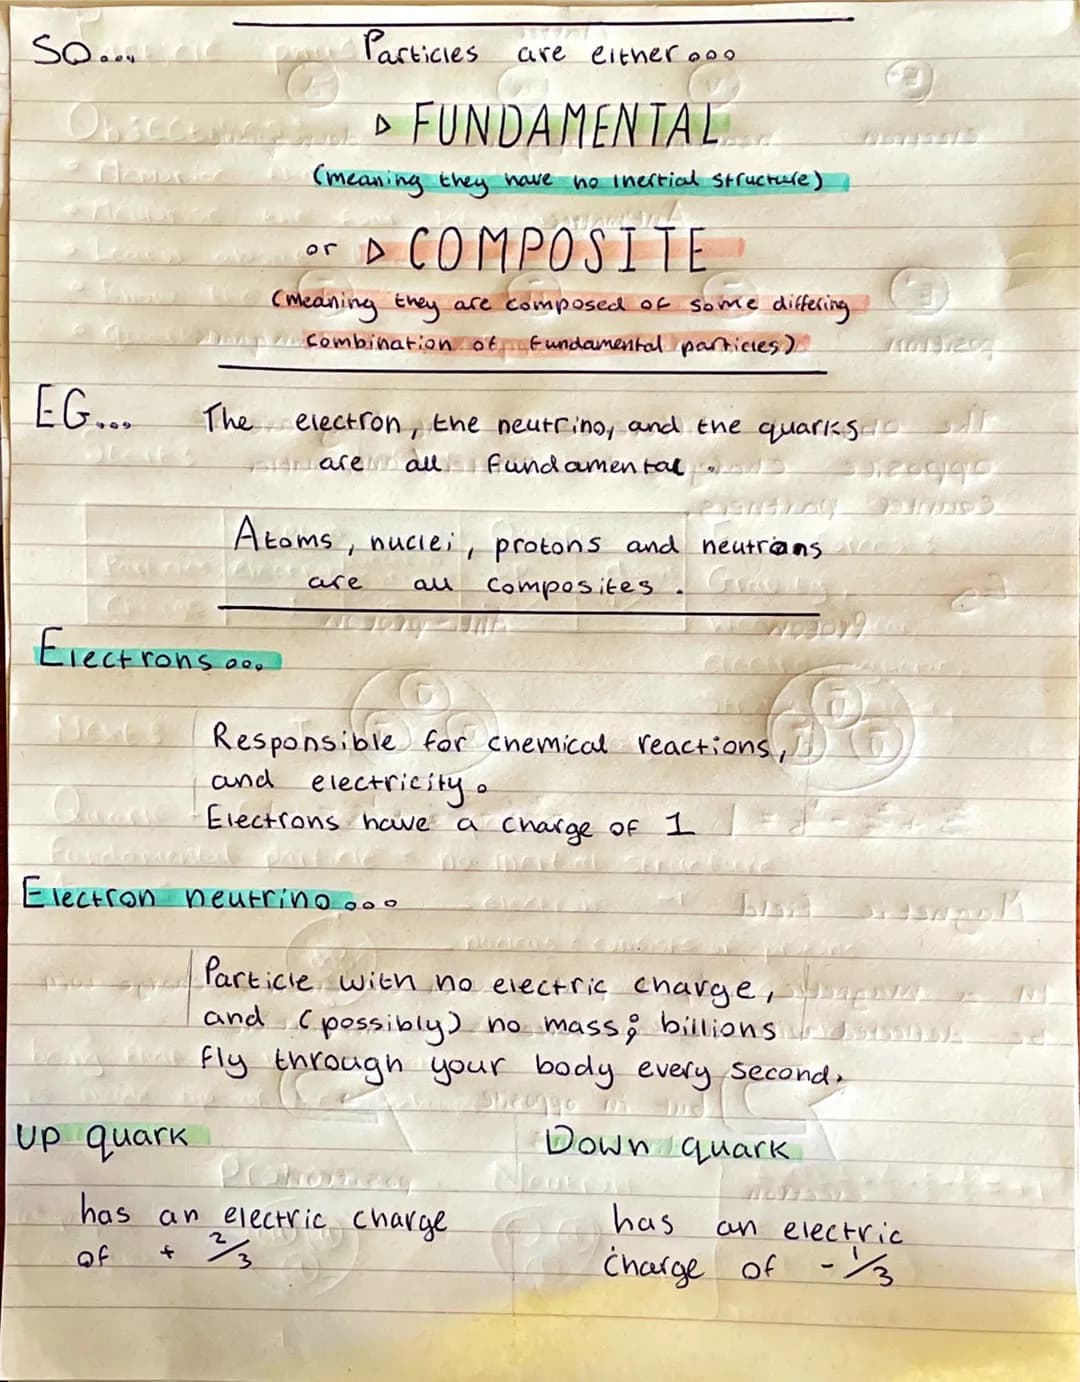 SO...
Particles are either...
▷ FUNDAMENTAL
(meaning they have no inertial structure)
or ▷ COMPOSITE
(meaning they are composed of some differing
combination of fundamental particles)
EG...
The electron, the neutrino, and the quarks
are all fundamental.
Atoms, nuclei, protons and neutrons
are all composites.
Electrons...
Responsible for chemical reactions,
and electricity.
Electrons have a charge of 1
Electron neutrino...
Particle with no electric charge,
and (possibly) no mass; billions
fly through your body every second.
UP quark
has an electric charge
of + 2/3
Down quark
has an electric
charge of - 1/3